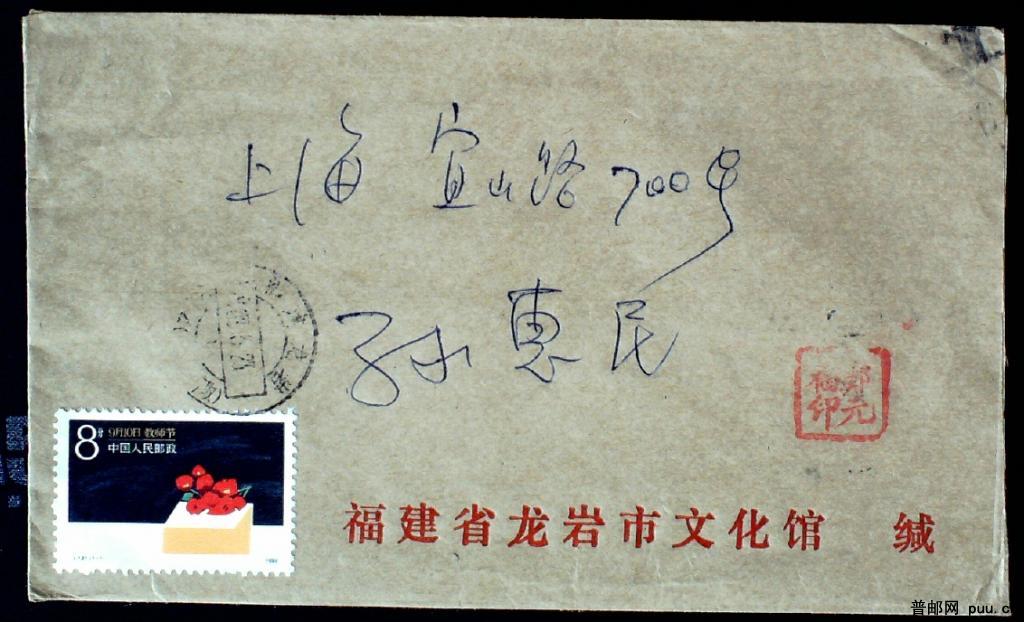 上海 宜山路700号
孙惠民
8分 9月10日 教师节
中国人民邮政
福建省龙岩市文化馆 缄
普邮网 puu.c